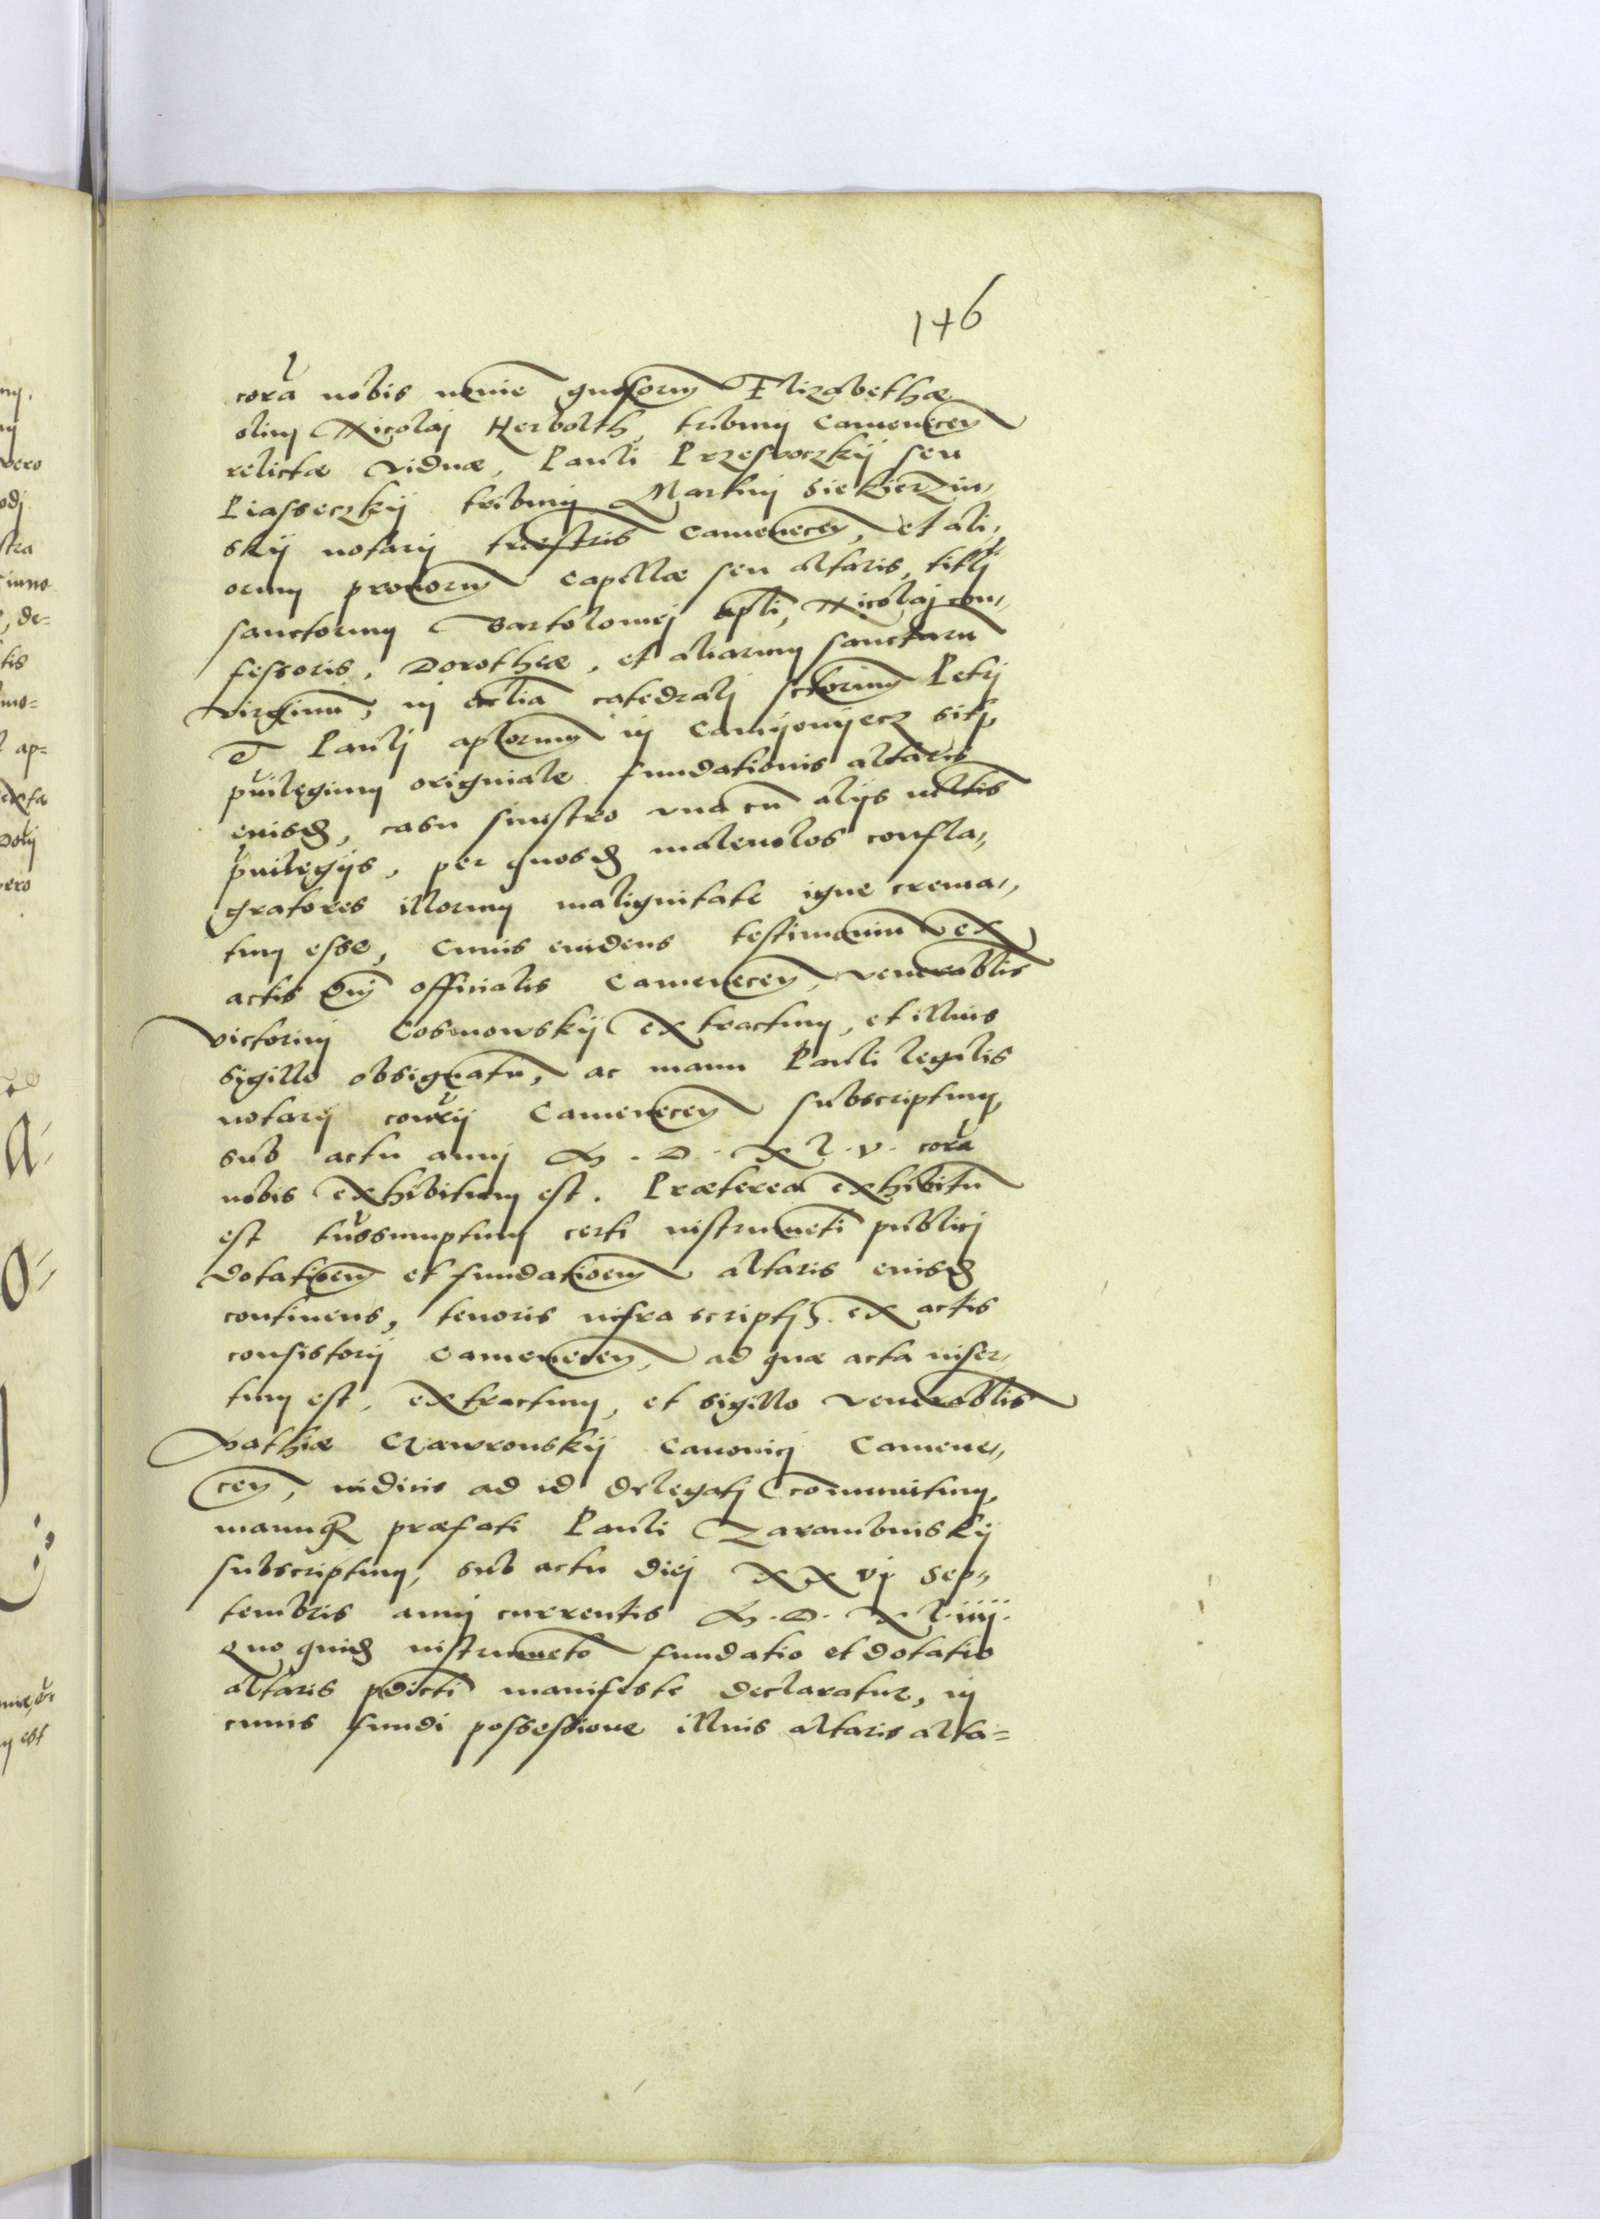 146
corã nobis noĩe gnosorũ Elizabethæ
olim Nicolaj Herbolth, tribunj Camenecen̄
relictæ viduæ, Pauli Przesvoczkij seu
Piasseczkij tribunj Martinj Siekierzin,,
skij notarij trr̃estris Camenecen̄, et ali,,
orum pr̃onorũ Capellæ seu altaris, titlj
sanctorum Bartolomej apl̃i, Nicolaj con,,
fessoris, Dorotheæ, et aliarum sanctarũ
virginũ, in eccl̃ia catedralj sctorum̃ Petrj
et Paulj apl̃orum̃ in Camyonyecz sitj,
pͥuilegium originale fundationis altaris
eiusd̃, casu sinistro vna cũ alijs ml̃tis
pͥuilegijs, per quosd̃ maleuolos confla,,
gratores illorum malignitate igne crema,,
tum esse, cuius euidens testimoniũ ex
actis oĩm officialis Camenecen̄, venerabl̃is
victorinj Cosmowskij extractum, et illius
sigillo obsignatũ, ac manu Pauli legalis
notarij con̄rij Camenecen̄ subscriptum,
sub actu annj M. D. Xl. v. corã
nobis exhibitum est. Præterea exhibitũ
est trãssumptum certi instrumẽti publicj
dotatiõem et fundatiõem altaris eiusd̃
continens, tenoris infra scriptj. ex actis
consistorij Camenecen̄, ad quæ acta inser,,
tum est, extractum, et sigillo venerabl̃is
Mathiæ Gawronskij Canonicj Camene,,
cen̄, iudicis ad id delegatj com̃unitum,
manuq̃ præfati Pauli Zarambinskij
subscriptum, sub actu diej XX vj Sep,,
tembris annj currentis M. D. Xliiij.
quo quid̃ instrumẽto fundatio et dotatio
altaris pdicti manifeste declaratur, in
cuius fundi possessione illius altaris alta=